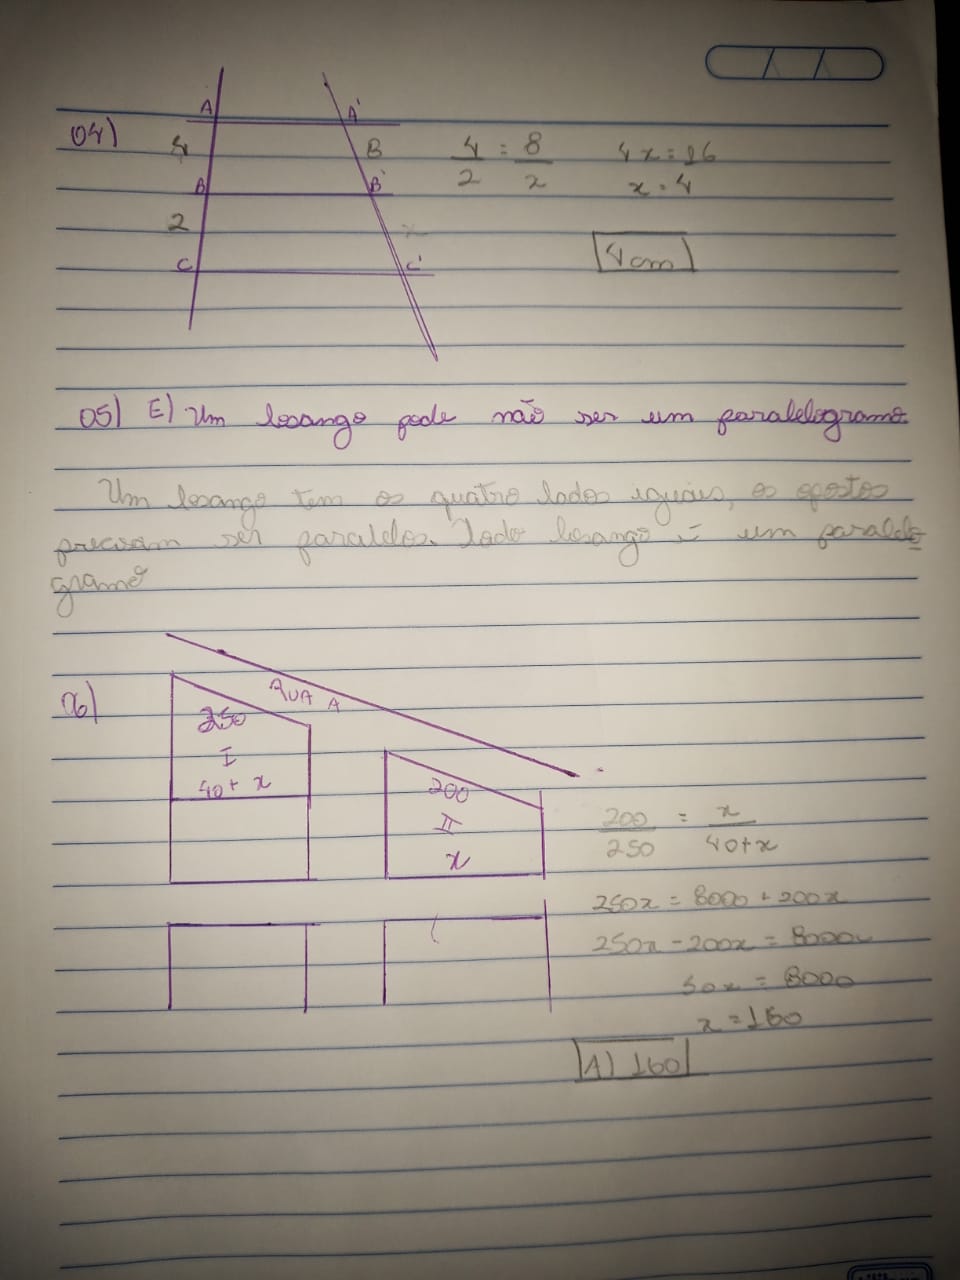 04)
A A'
4 B 4/2 = 8/x 4x = 16
B B' x = 4
2 x
C C' 4cm
05) E) Um losango pode não ser um paralelogramo.
Um losango tem os quatro lados iguais, os opostos
precisam ser paralelos. Todo losango é um paralelo
gramo
06)
RUA A
250
I
40+ x
200
II
x
200/250 = x/40+x
250x = 8000 + 200x
250x - 200x = 8000
50x = 8000
x = 160
A) 160